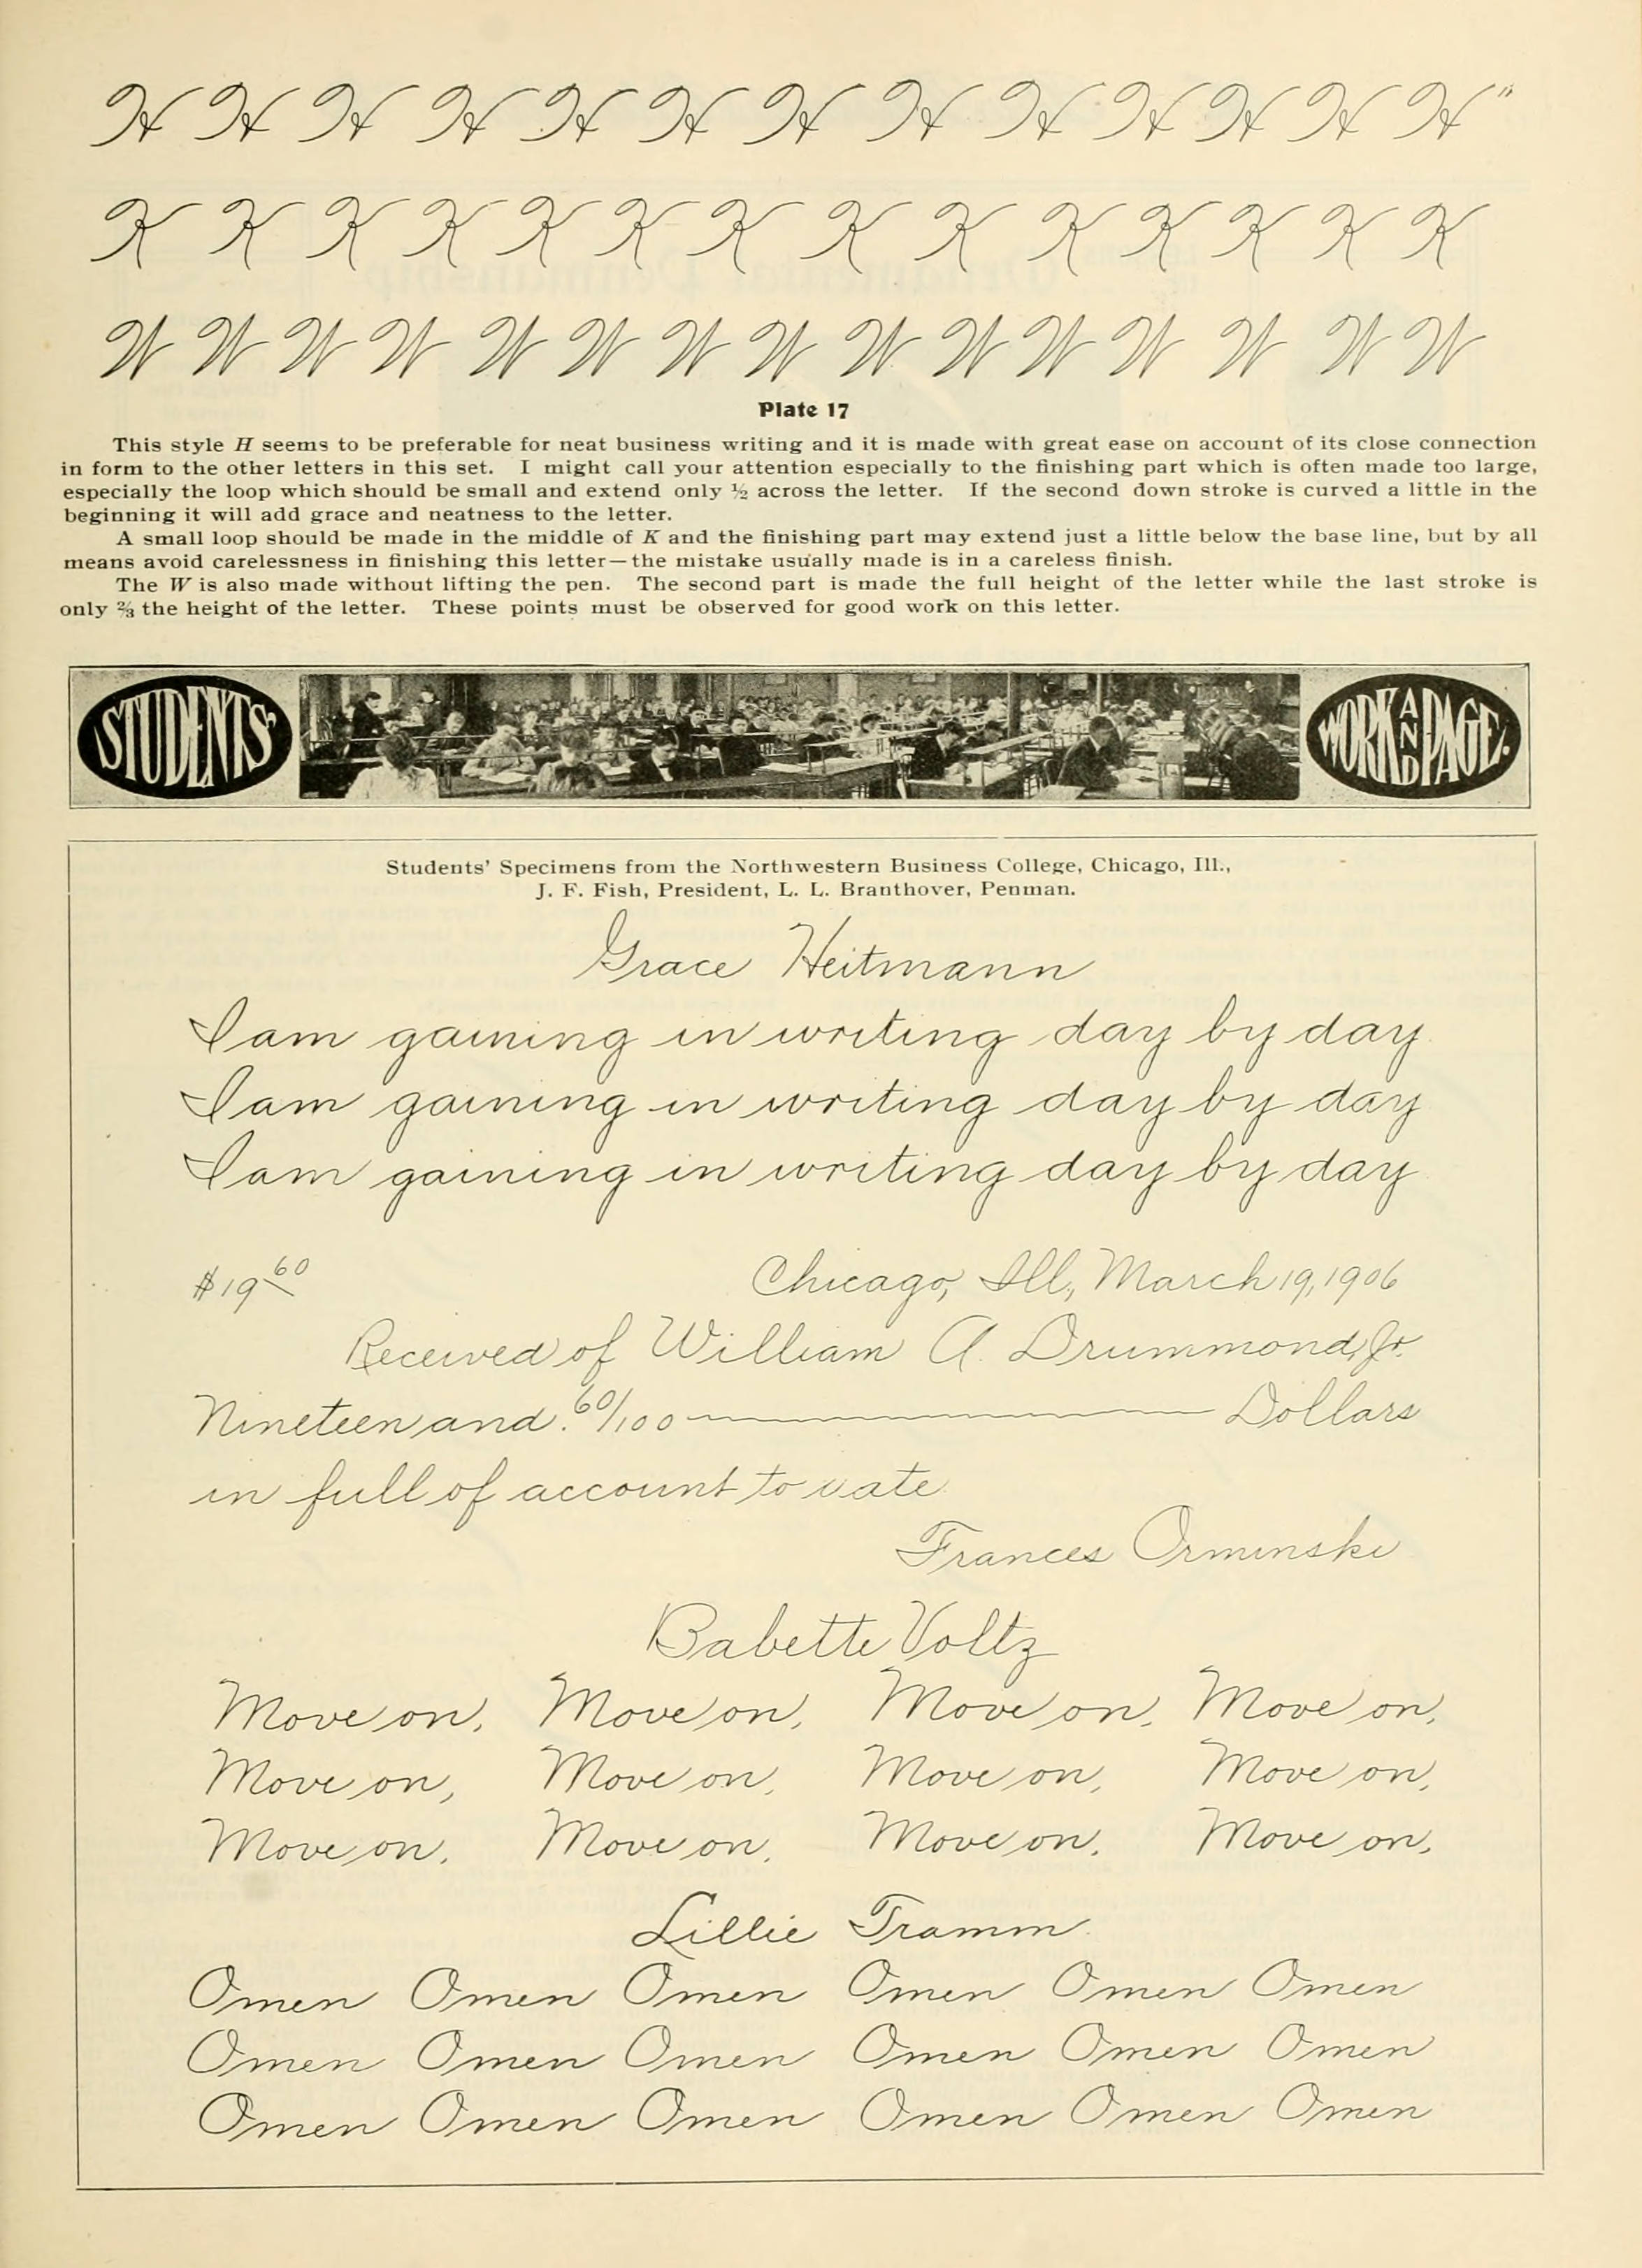 H H H H H H H H H H H H H "
K K K K K K K K K K K K K K
W W W W W W W W W W W W W W W
Plate 17
This style H seems to be preferable for neat business writing and it is made with great ease on account of its close connection
in form to the other letters in this set. I might call your attention especially to the finishing part which is often made too large,
especially the loop which should be small and extend only ½ across the letter. If the second down stroke is curved a little in the
beginning it will add grace and neatness to the letter.
A small loop should be made in the middle of K and the finishing part may extend just a little below the base line, but by all
means avoid carelessness in finishing this letter—the mistake usually made is in a careless finish.
The W is also made without lifting the pen. The second part is made the full height of the letter while the last stroke is
only ⅔ the height of the letter. These points must be observed for good work on this letter.
STUDENTS' WORK AND PAGE.
Students' Specimens from the Northwestern Business College, Chicago, Ill.,
J. F. Fish, President, L. L. Branthover, Penman.
Grace Heitmann
I am gaining in writing day by day
I am gaining in writing day by day
I am gaining in writing day by day
$19 60 Chicago, Ill., March 19, 1906
Received of William A. Drummond, Jr.
Nineteen and 60/100 Dollars
in full of account to date
Frances Orminski
Babette Voltz
Move on, Move on, Move on, Move on,
Move on, Move on, Move on, Move on,
Move on, Move on, Move on, Move on,
Lillie Tramm
Omen Omen Omen Omen Omen Omen
Omen Omen Omen Omen Omen Omen
Omen Omen Omen Omen Omen Omen